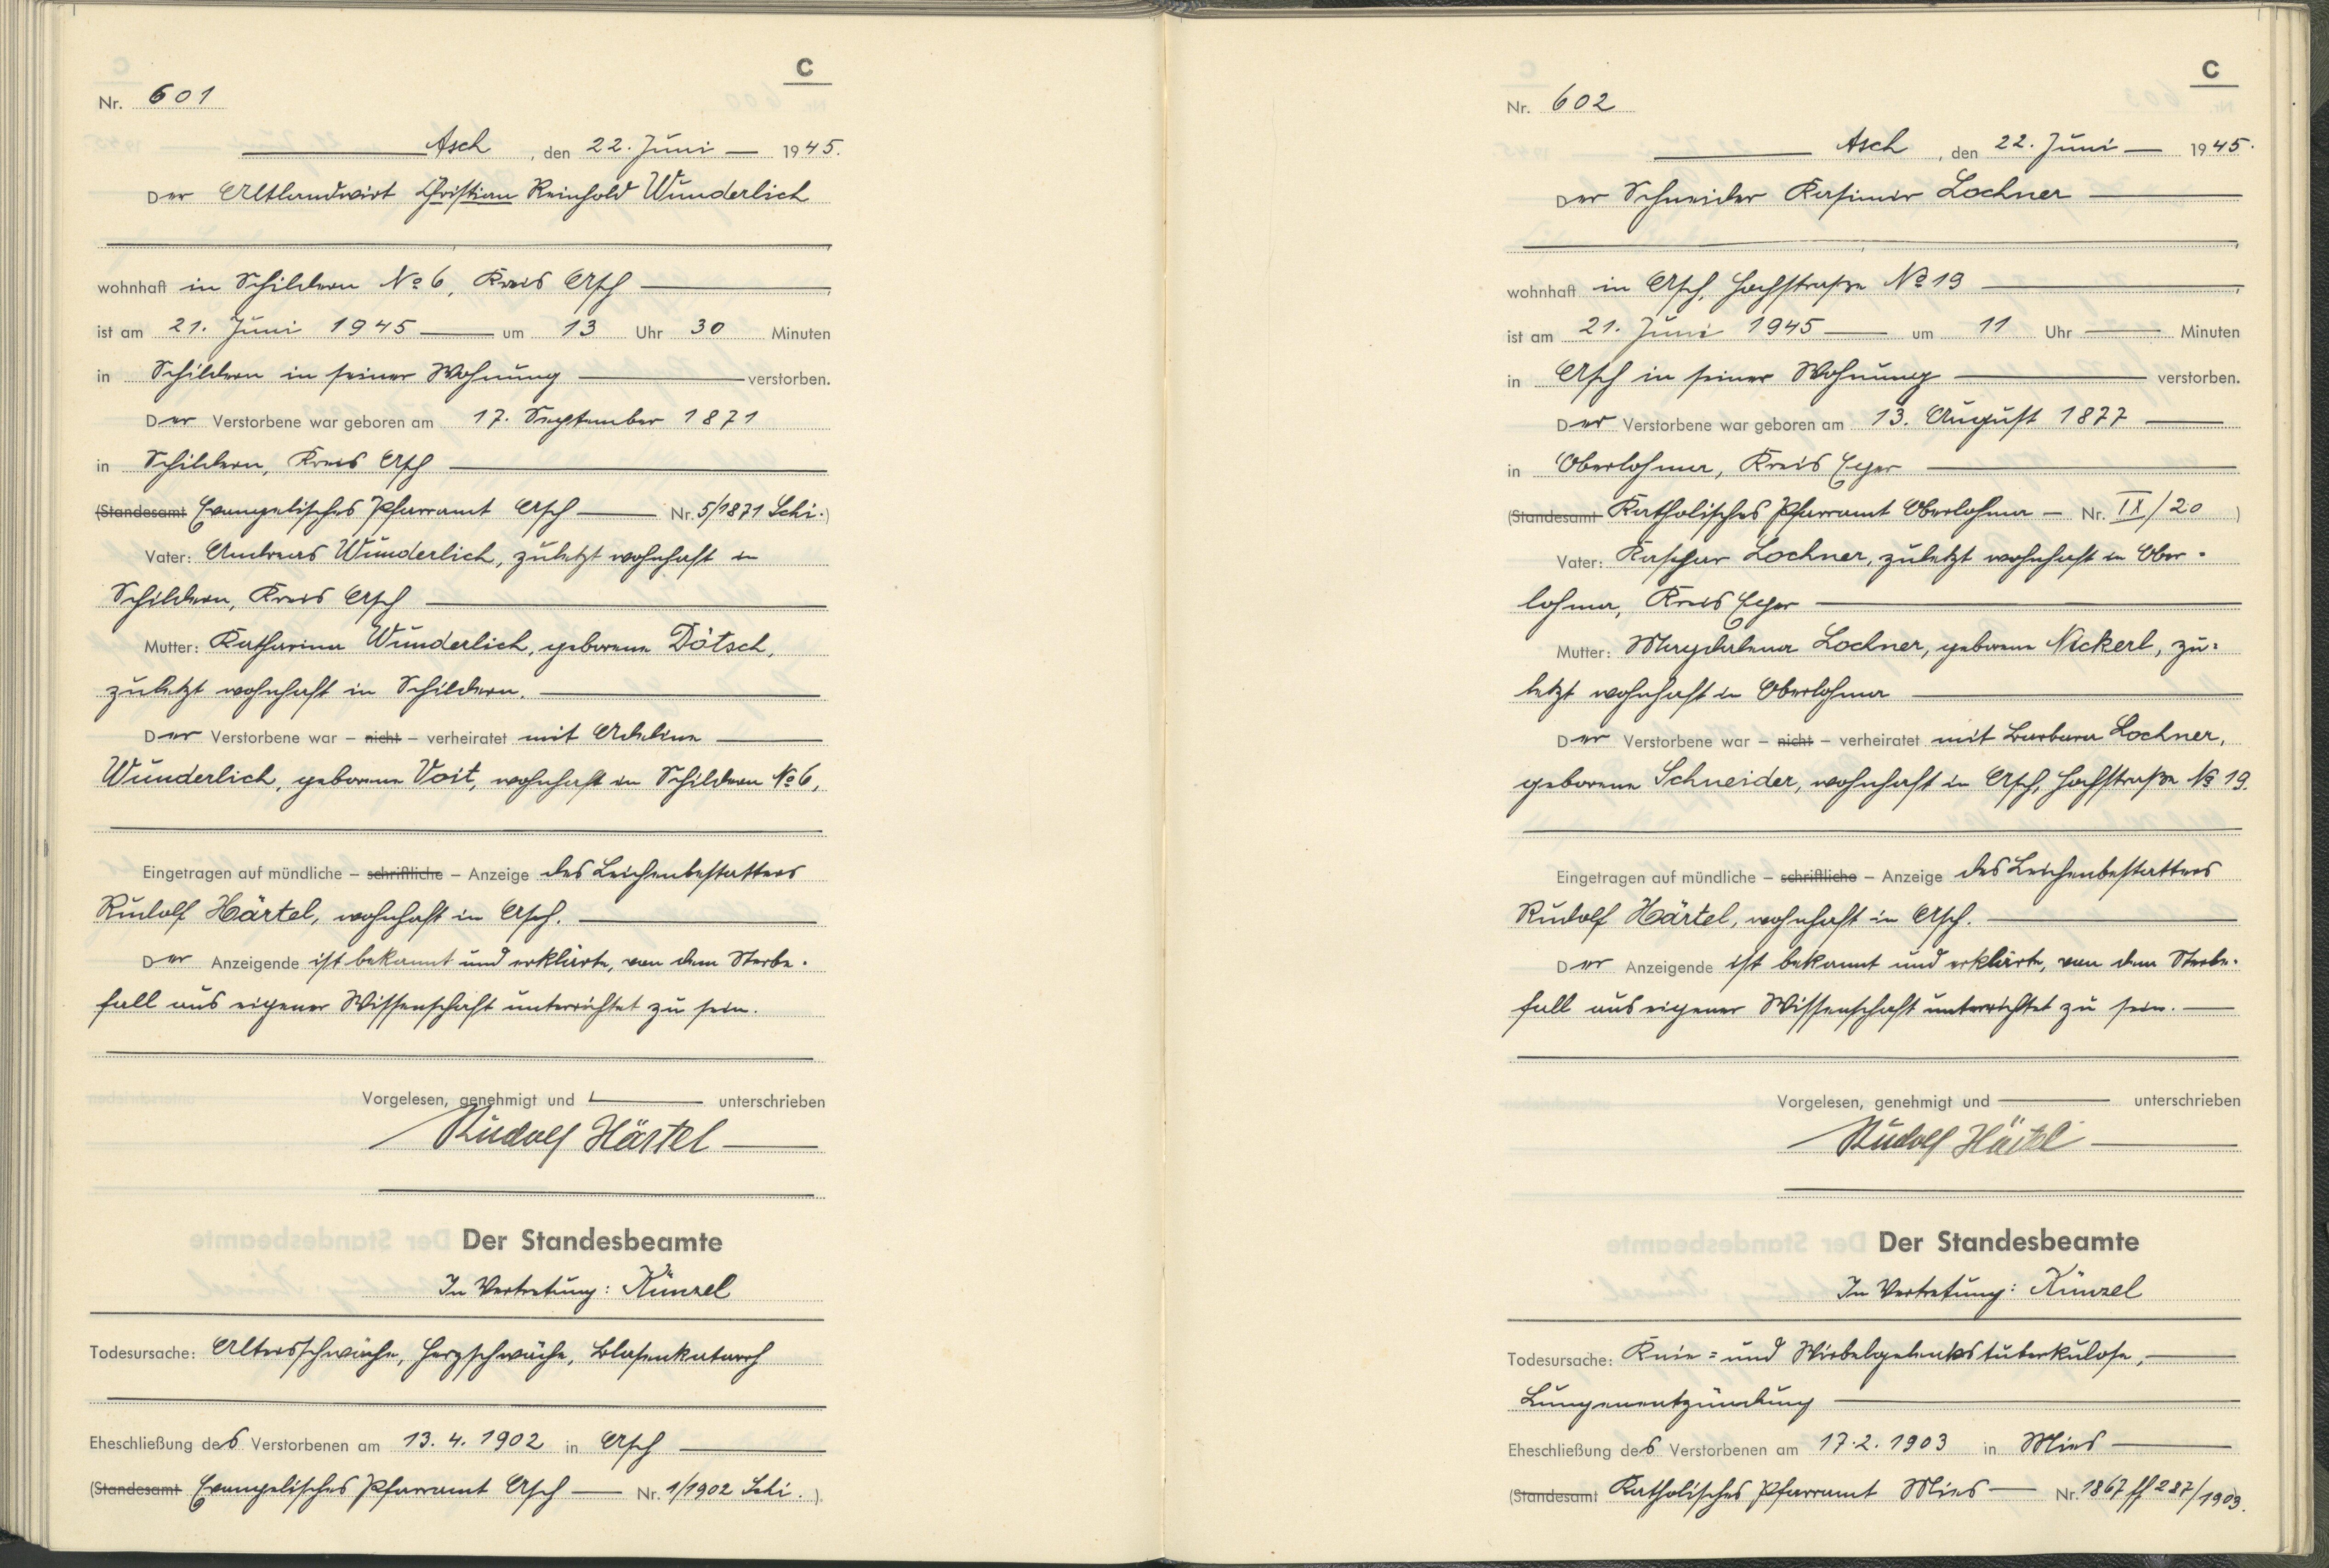 C
Nr. 601
Asch, den 22. Juni 1945.
Der Altlandwirt Christian Reinhold Wunderlich
wohnhaft in Schildern No 6, Kreis Asch
ist am 21. Juni 1945 um 13 Uhr 30 Minuten
in Schildern in seiner Wohnung verstorben.
Der Verstorbene war geboren am 17. September 1871
in Schildern, Kreis Asch
(Standesamt Evangelisches Pfarramt Asch Nr. 5/1871 Schi.)
Vater: Andreas Wunderlich, zuletzt wohnhaft in
Schildern, Kreis Asch
Mutter: Katharina Wunderlich, geborene Dötsch,
zuletzt wohnhaft in Schildern.
Der Verstorbene war – nicht – verheiratet mit Adeline
Wunderlich, geborene Voit, wohnhaft in Schildern No 6,
Eingetragen auf mündliche – schriftliche – Anzeige des Leichenbestatters
Rudolf Härtel, wohnhaft in Asch.
Der Anzeigende ist bekannt und erklärte, von dem Sterbe-
fall aus eigener Wissenschaft unterrichtet zu sein.
Vorgelesen, genehmigt und unterschrieben
Rudolf Härtel
Der Standesbeamte
In Vertretung: Künzel
Todesursache: Altersschwäche, Herzschwäche, Blasenkatarrh
Eheschließung des Verstorbenen am 13. 4. 1902 in Asch
(Standesamt Evangelisches Pfarramt Asch Nr. 1/1902 Schi.).
C
Nr. 602
Asch, den 22. Juni 1945.
Der Schneider Kasimir Lochner
wohnhaft in Asch, Hochstraße No 19
ist am 21. Juni 1945 um 11 Uhr Minuten
in Asch in seiner Wohnung verstorben.
Der Verstorbene war geboren am 13. August 1877
in Oberlohma, Kreis Eger
(Standesamt Katholisches Pfarramt Oberlohma Nr. IX/20)
Vater: Kaspar Lochner, zuletzt wohnhaft in Ober-
lohma, Kreis Eger
Mutter: Magdalena Lochner, geborene Nickerl, zu=
letzt wohnhaft in Oberlohma
Der Verstorbene war – nicht – verheiratet mit Barbara Lochner,
geborene Schneider, wohnhaft in Asch, Hochstraße No 19.
Eingetragen auf mündliche – schriftliche – Anzeige des Leichenbestatters
Rudolf Härtel, wohnhaft in Asch.
Der Anzeigende ist bekannt und erklärte, von dem Sterbe-
fall aus eigener Wissenschaft unterrichtet zu sein.
Vorgelesen, genehmigt und unterschrieben
Rudolf Härtel
Der Standesbeamte
In Vertretung: Künzel
Todesursache: Knie= und Wirbelgelenkstuberkulose,
Lungenentzündung
Eheschließung des Verstorbenen am 17. 2. 1903 in Mies
(Standesamt Katholisches Pfarramt Mies Nr. 1867 ff 287/1903.